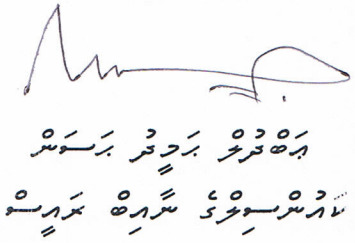 ޢަބްދުލް ޙަމީދު ޙަސަން
ކައުންސިލްގެ ނާއިބް ރައީސް